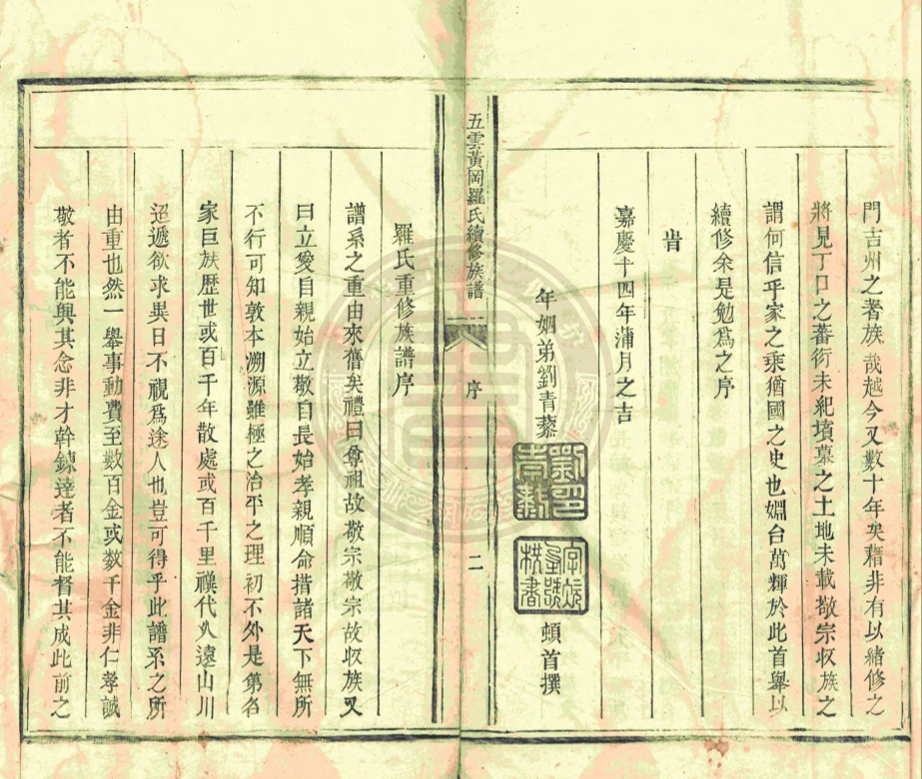 門吉州之著族哉越今又數十年矣藉非有以緒修之
將見丁口之蕃衍未紀墳墓之土地未載敬宗收族之
謂何信乎家之乘猶國之史也姻台萬輝於此首舉以
續修余是勉爲之序
旹
嘉慶十四年蒲月之吉
年姻弟劉青藜
頓首撰
五雲黃岡羅氏續修族譜
一
序
二
羅氏重修族譜序
譜系之重由來舊矣禮曰尊祖故敬宗敬宗故收族又
曰立愛自親始立敬自長始孝親順命措諸天下無所
不行可知敦本溯源雖極之治平之理初不外是第名
家巨族歷世或百千年散處或百千里禩代久遠山川
迢遞欲求異日不視爲途人也豈可得乎此譜系之所
由重也然一舉事動費至數百金或數千金非仁孝誠
敬者不能興其念非才幹鍊達者不能督其成此前之